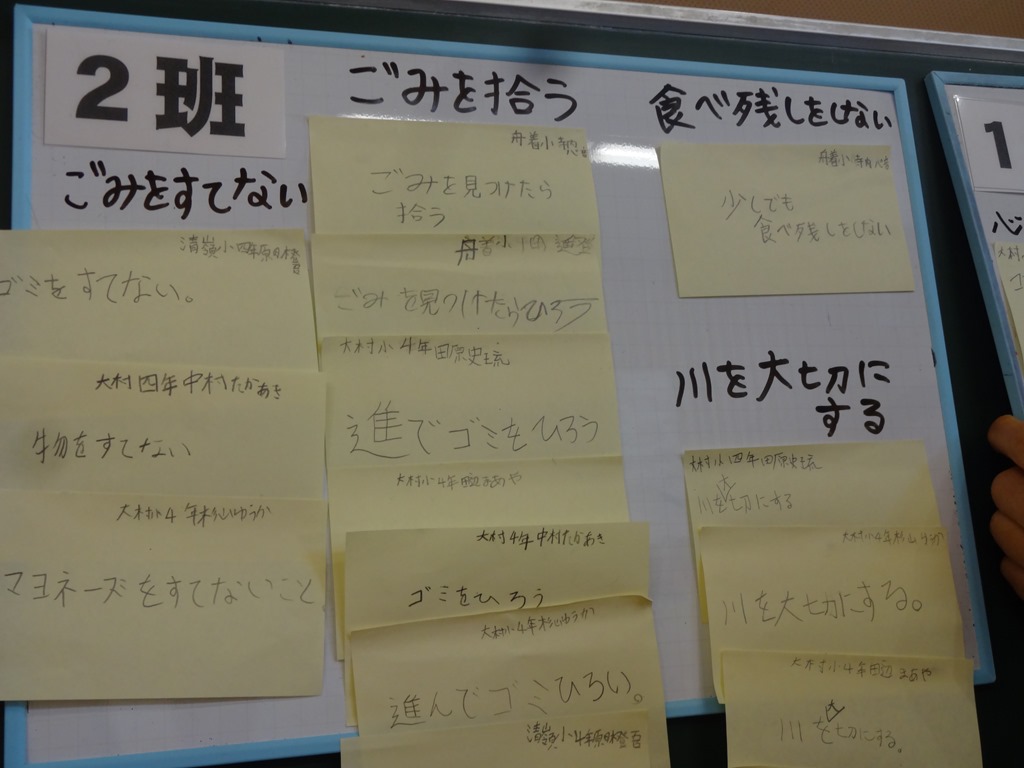 2班
ごみをすてない
清嶺小四年
ゴミをすてない。
大村四年中村たかあき
物をすてない
大村小4年杉山ゆうか
マヨネーズをすてないこと
ごみを拾う
舟着小
ごみを見つけたら
拾う
舟着小
ごみを見つけたらひろう
大村小4年田原史琉
進でゴミをひろう
大村小4年田辺まあや
大村4年中村たかあき
ゴミをひろう
大村小4年杉山ゆうか
進んでゴミひろい。
清嶺小4年
食べ残しをしない
舟着小
少しでも
食べ残しをしない
川を大切に
する
大村小四年田原史琉
川を大切にする
大村小4年杉山ゆうか
川を大切にする。
大村小4年田辺まあや
川を大切にする。
1
心